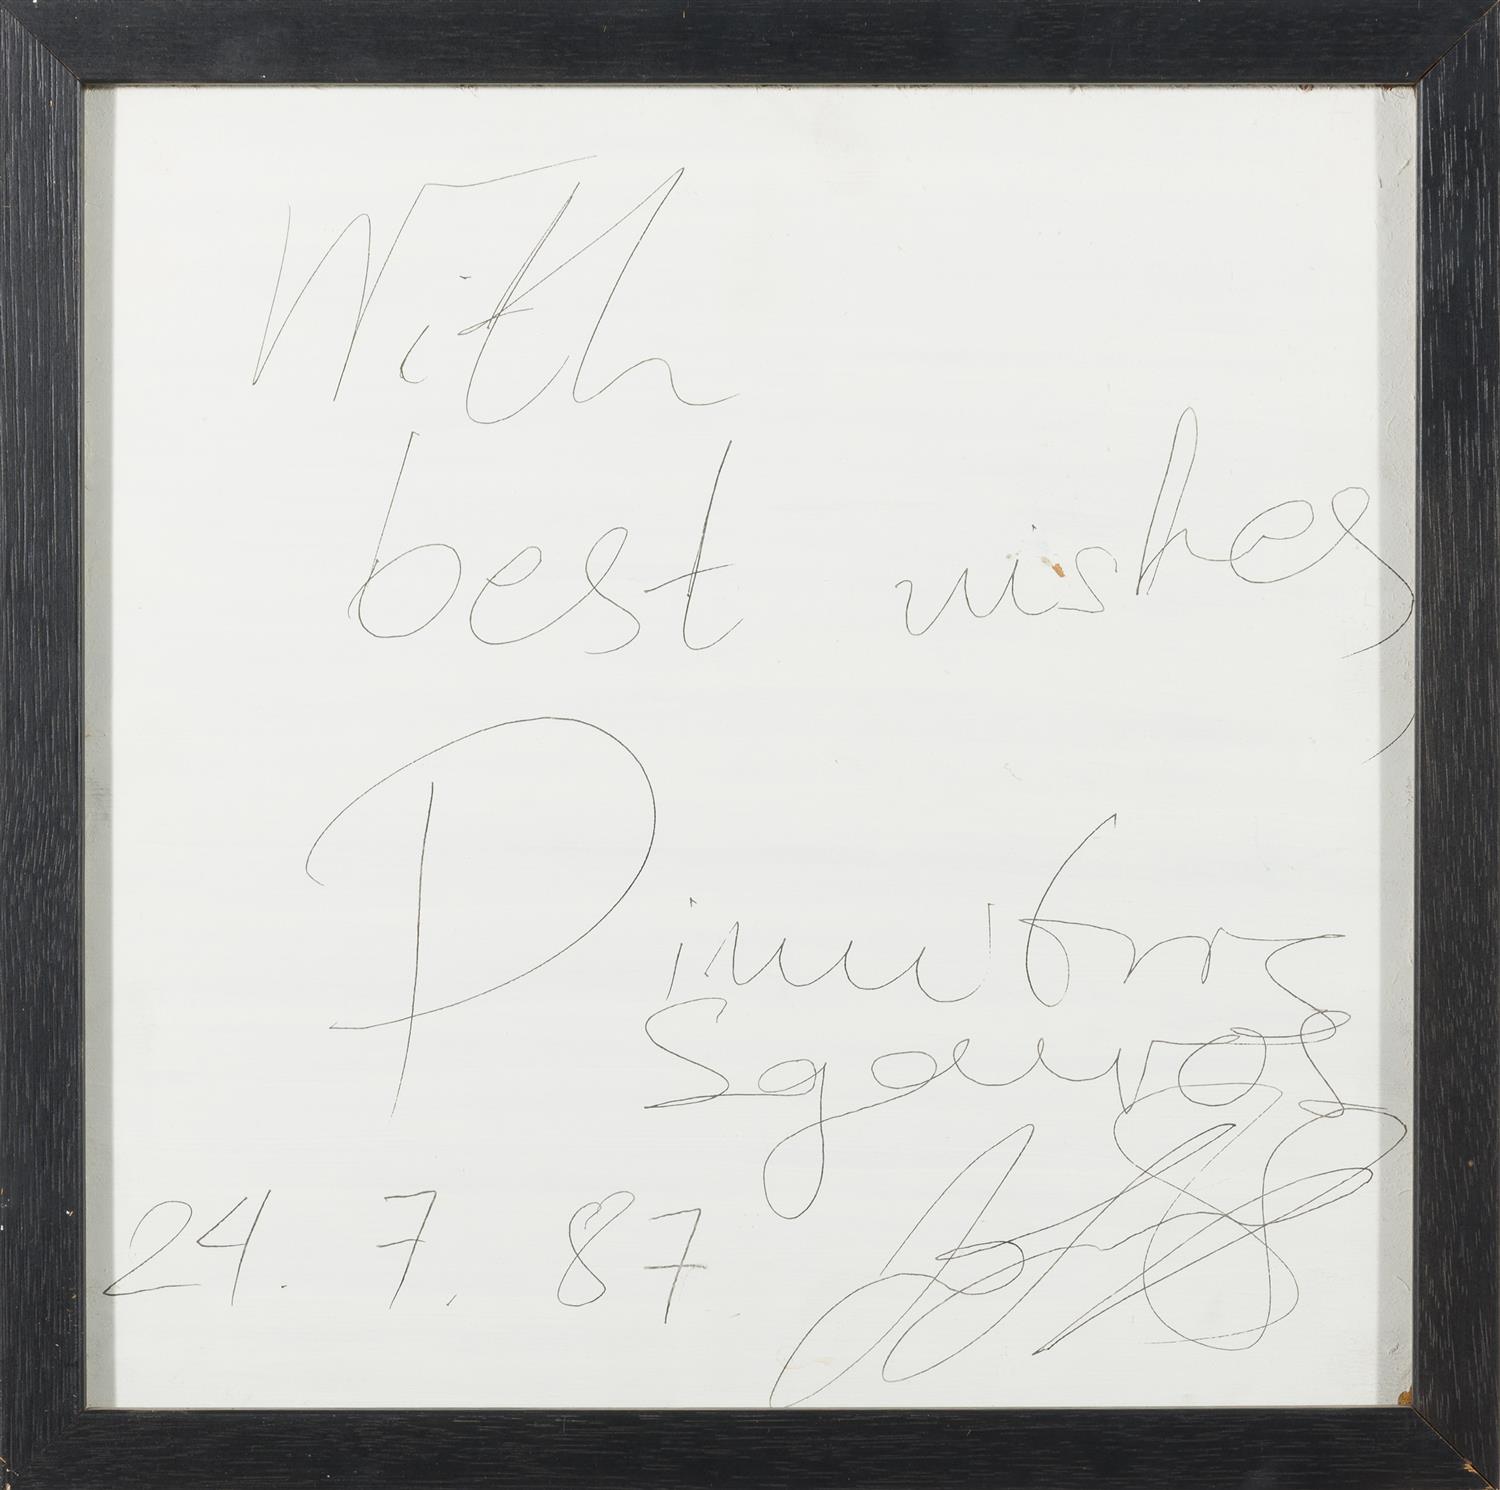 With
best wishes
Dimitris
Sgouros
24. 7. 87